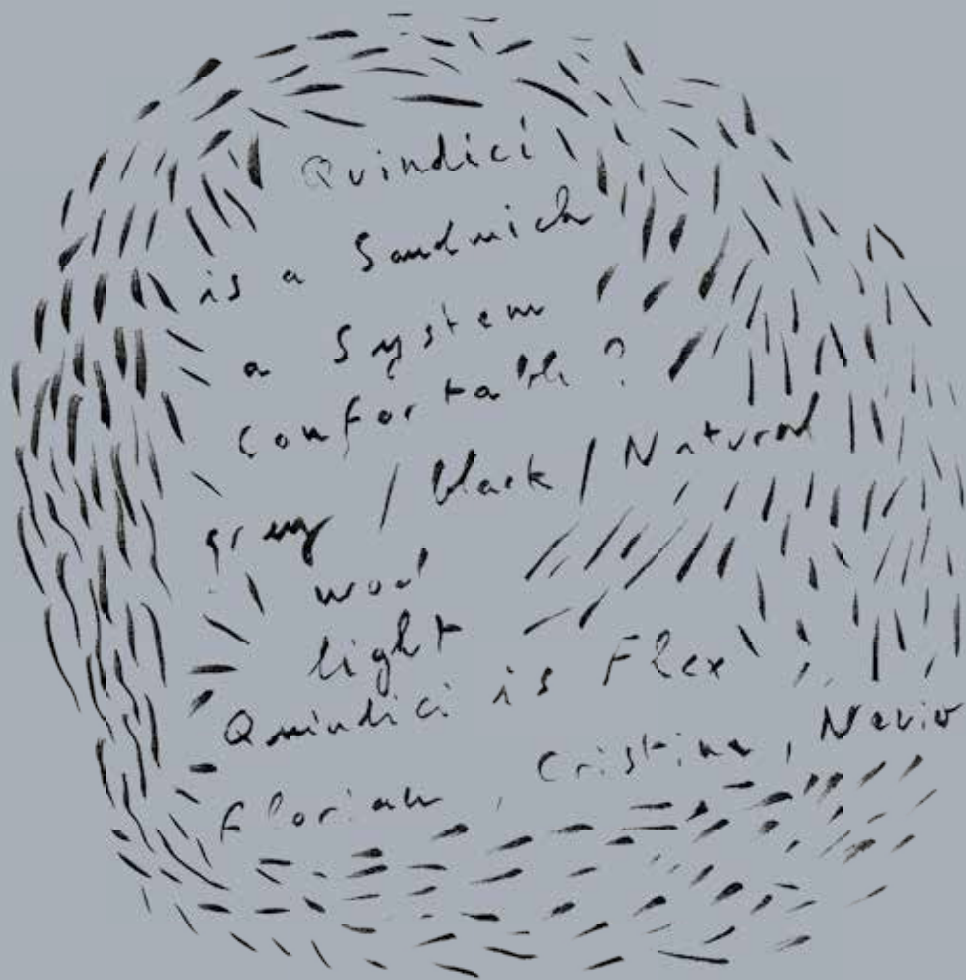 Quindici
is a Sandwich
a System
Confortable ?
grey / black / Natural
wood
light
Quindici is Flex
Florian, Cristina, Nevio